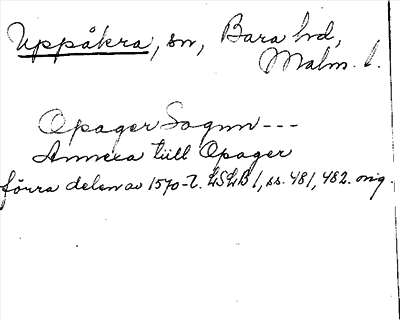 Uppåkra, sn, Bara hd,
Malm. l.
Opager Sognn ---
Annexa till Opager
förra delen av 1570-t. LSLB 1, ss. 481, 482. orig.